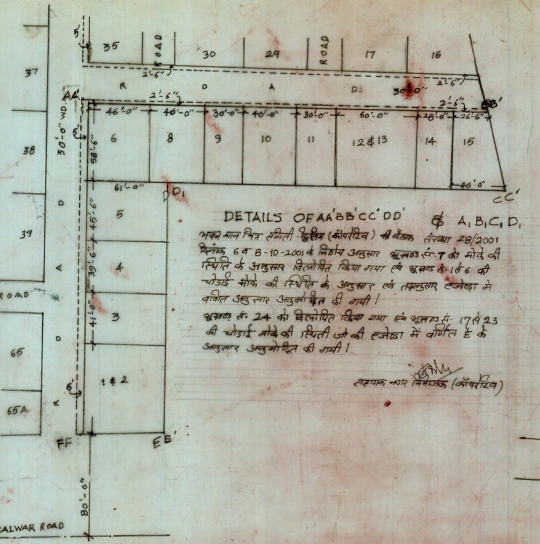 35
ROAD
30
29
ROAD
17
16
5'
37
2'-6"
2'-6"
ROAD
30'-0"
AA'
2'-6"
2'-6"
BB'
46'-0"
40'-0"
30'-0"
40'-0"
30'-0"
60'-0"
28'-0"
26'-6"
5'
30'-0" WD. ROAD
38
58'-6"
6
8
9
10
11
12 & 13
14
15
40'-0"
CC'
61'-0"
DD1
39
45'-6"
5
39'-6"
4
ROAD
41'-0"
3
65
65A
6'
1 & 2
FF
EE'
80'-0"
ALWAR ROAD
DETAILS OF AA'BB'CC'DD' & A, B, C, D,
भवन मान चित्र समिती द्वितीय (कॉपरेटिव) की बैठक संख्या 28/2001
दिनांक 6 व 8-10-2001 के निर्णय अनुसार भूखण्ड सं. 7 को मौके की
स्थिति के अनुसार विलोपित किया गया एवं भूखण्ड सं. 1 से 6 की
चौडाई मौके की स्थिति के अनुसार एवं तद्नुसार एजेण्डा में
वर्णित अनुसार अनुमोदित की गयी।
भूखण्ड सं. 24 को विलोपित किया गया एवं भूखण्ड सं. 17 से 23
की चौडाई मौके की स्थिती जो की एजेण्डा में वर्णित है के
अनुसार अनुमोदित की गयी।
सहायक नगर नियोजक (कॉपरेटिव)